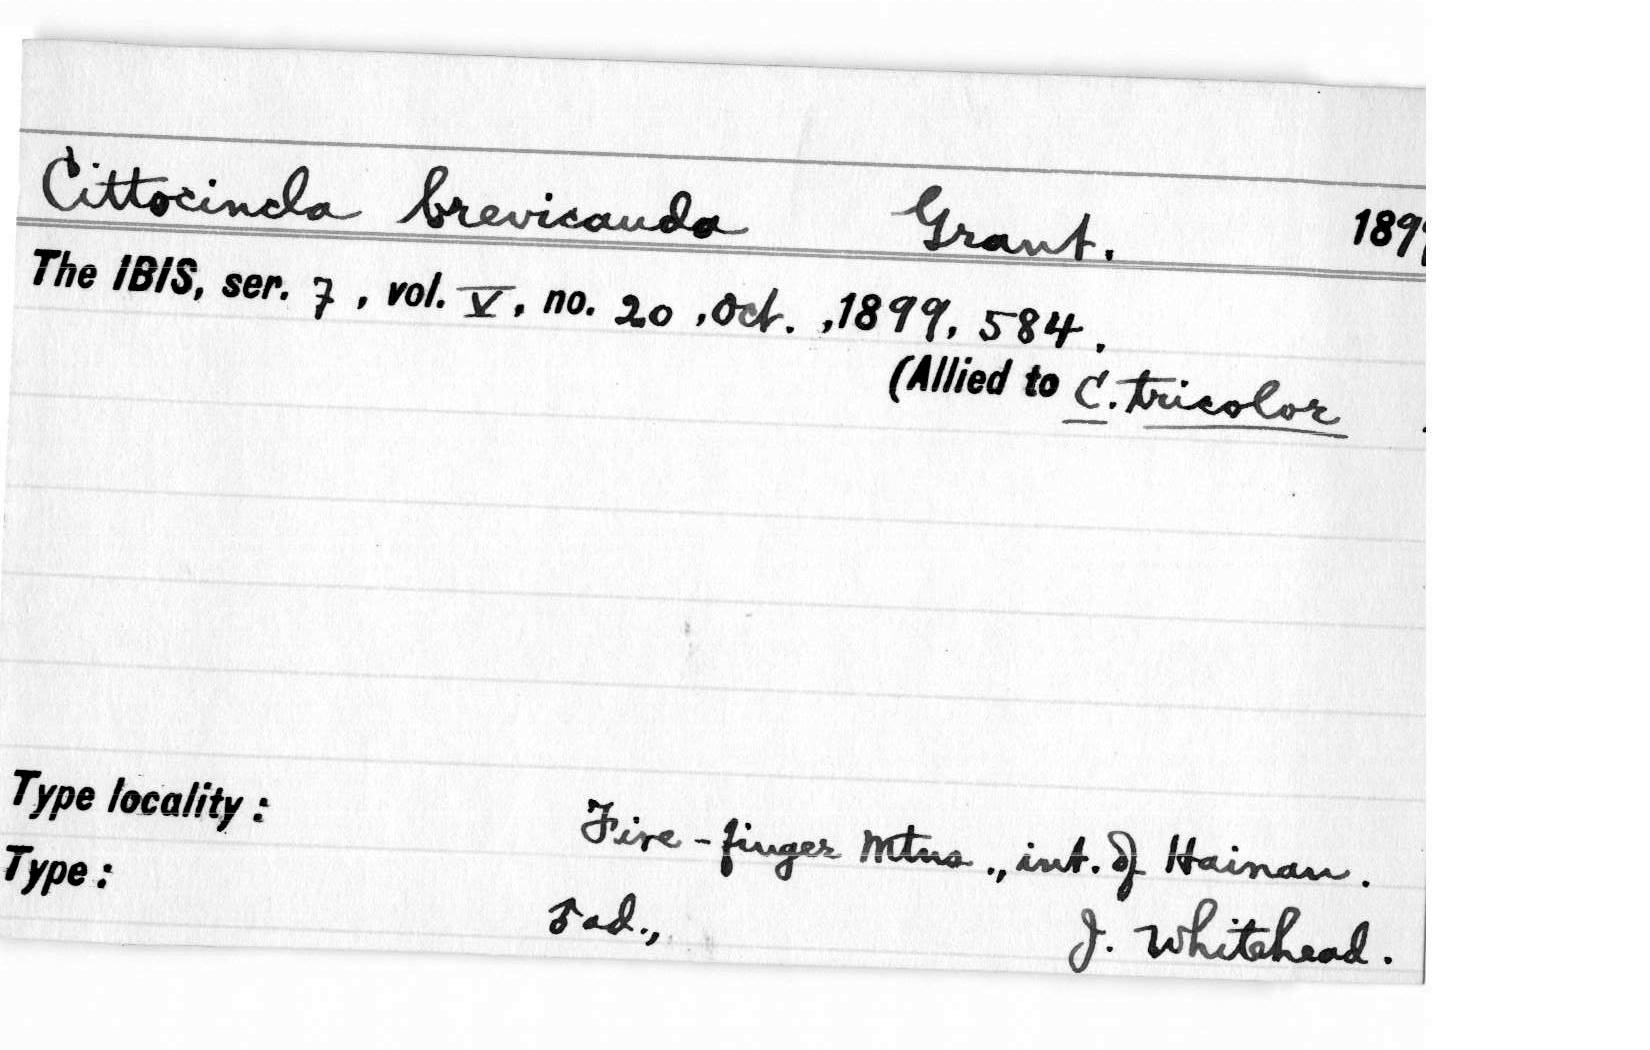 Cittocincla brevicauda Grant. 1899
The IBIS, ser. 7, vol. V, no. 20, Oct., 1899, 584.
(Allied to C. tricolor
Type locality: Five-finger Mtns., int. of Hainan.
Type: ♂ ad., J. Whitehead.